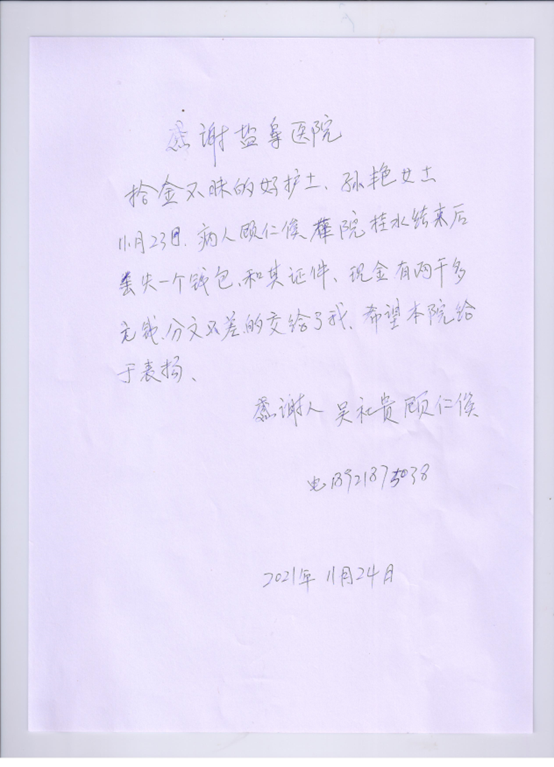 感谢盐阜医院
拾金不昧的好护士、孙艳女士
11月23日.病人顾仁俟 院挂水结束后
丢失一个钱包、和其证件、现金有两千多
元钱、分文不差的交给了我、希望本院给
于表扬、
感谢人 吴社贵 顾仁俟
电
2021年11月24日